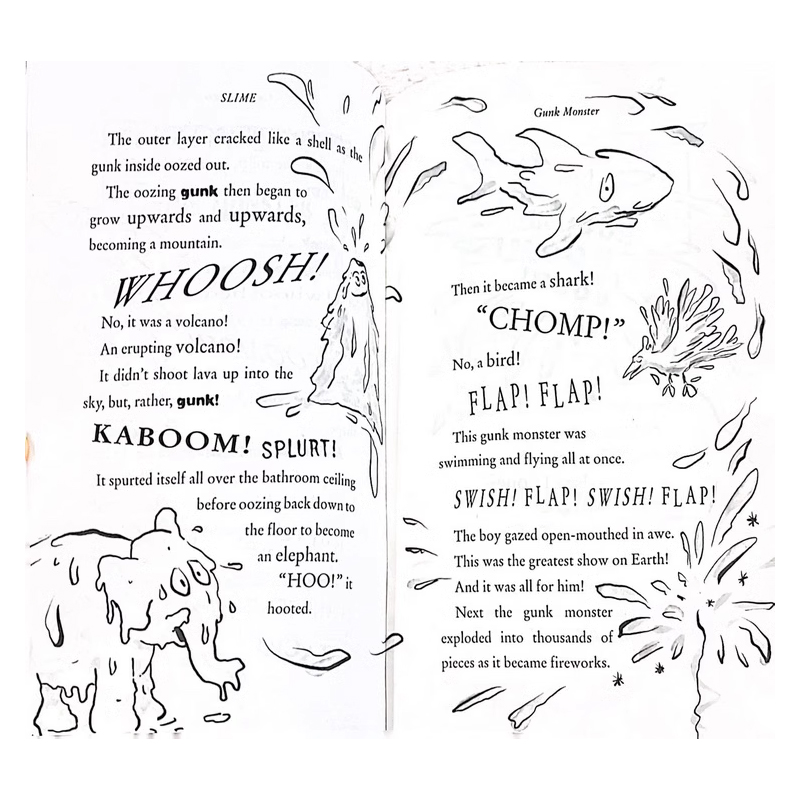 SLIME
The outer layer cracked like a shell as the
gunk inside oozed out.
The oozing gunk then began to
grow upwards and upwards,
becoming a mountain.
WHOOSH!
No, it was a volcano!
An erupting volcano!
It didn't shoot lava up into the
sky, but, rather, gunk!
KABOOM! SPLURT!
It spurted itself all over the bathroom ceiling
before oozing back down to
the floor to become
an elephant.
"HOO!" it
hooted.
Gunk Monster
Then it became a shark!
"CHOMP!"
No, a bird!
FLAP! FLAP!
This gunk monster was
swimming and flying all at once.
SWISH! FLAP! SWISH! FLAP!
The boy gazed open-mouthed in awe.
This was the greatest show on Earth!
And it was all for him!
Next the gunk monster
exploded into thousands of
pieces as it became fireworks.